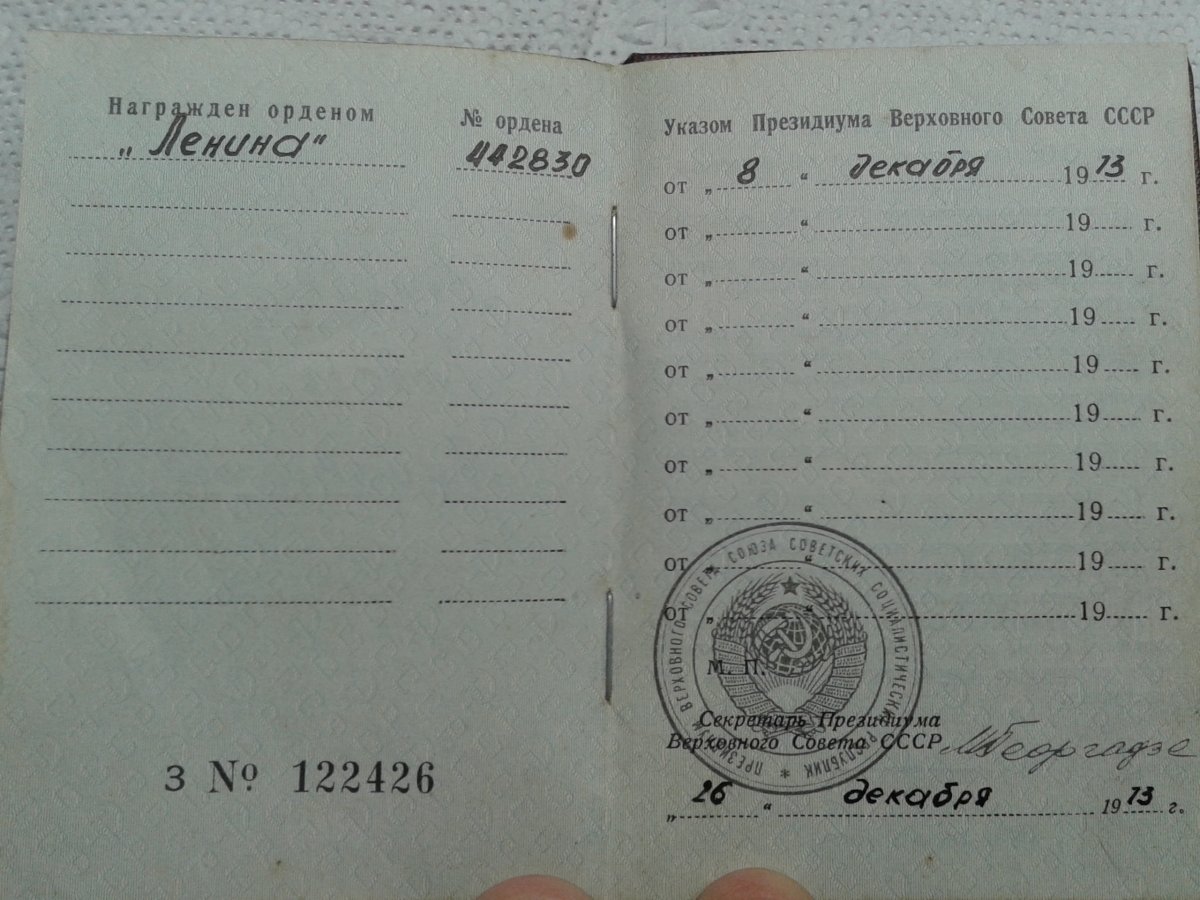 Награжден орденом
„Ленина"
№ ордена
442830
З № 122426
Указом Президиума Верховного Совета СССР
от „ 8 “ декабря 1973 г.
от „ “ 19 г.
от „ “ 19 г.
от „ “ 19 г.
от „ “ 19 г.
от „ “ 19 г.
от „ “ 19 г.
от „ “ 19 г.
от „ “ 19 г.
от „ “ 19 г.
ПРЕЗИДИУМ ВЕРХОВНОГО СОВЕТА СОЮЗА СОВЕТСКИХ СОЦИАЛИСТИЧЕСКИХ РЕСПУБЛИК *
М. П.
Секретарь Президиума
Верховного Совета СССР МГеоргадзе
„ 26 “ декабря 1973 г.